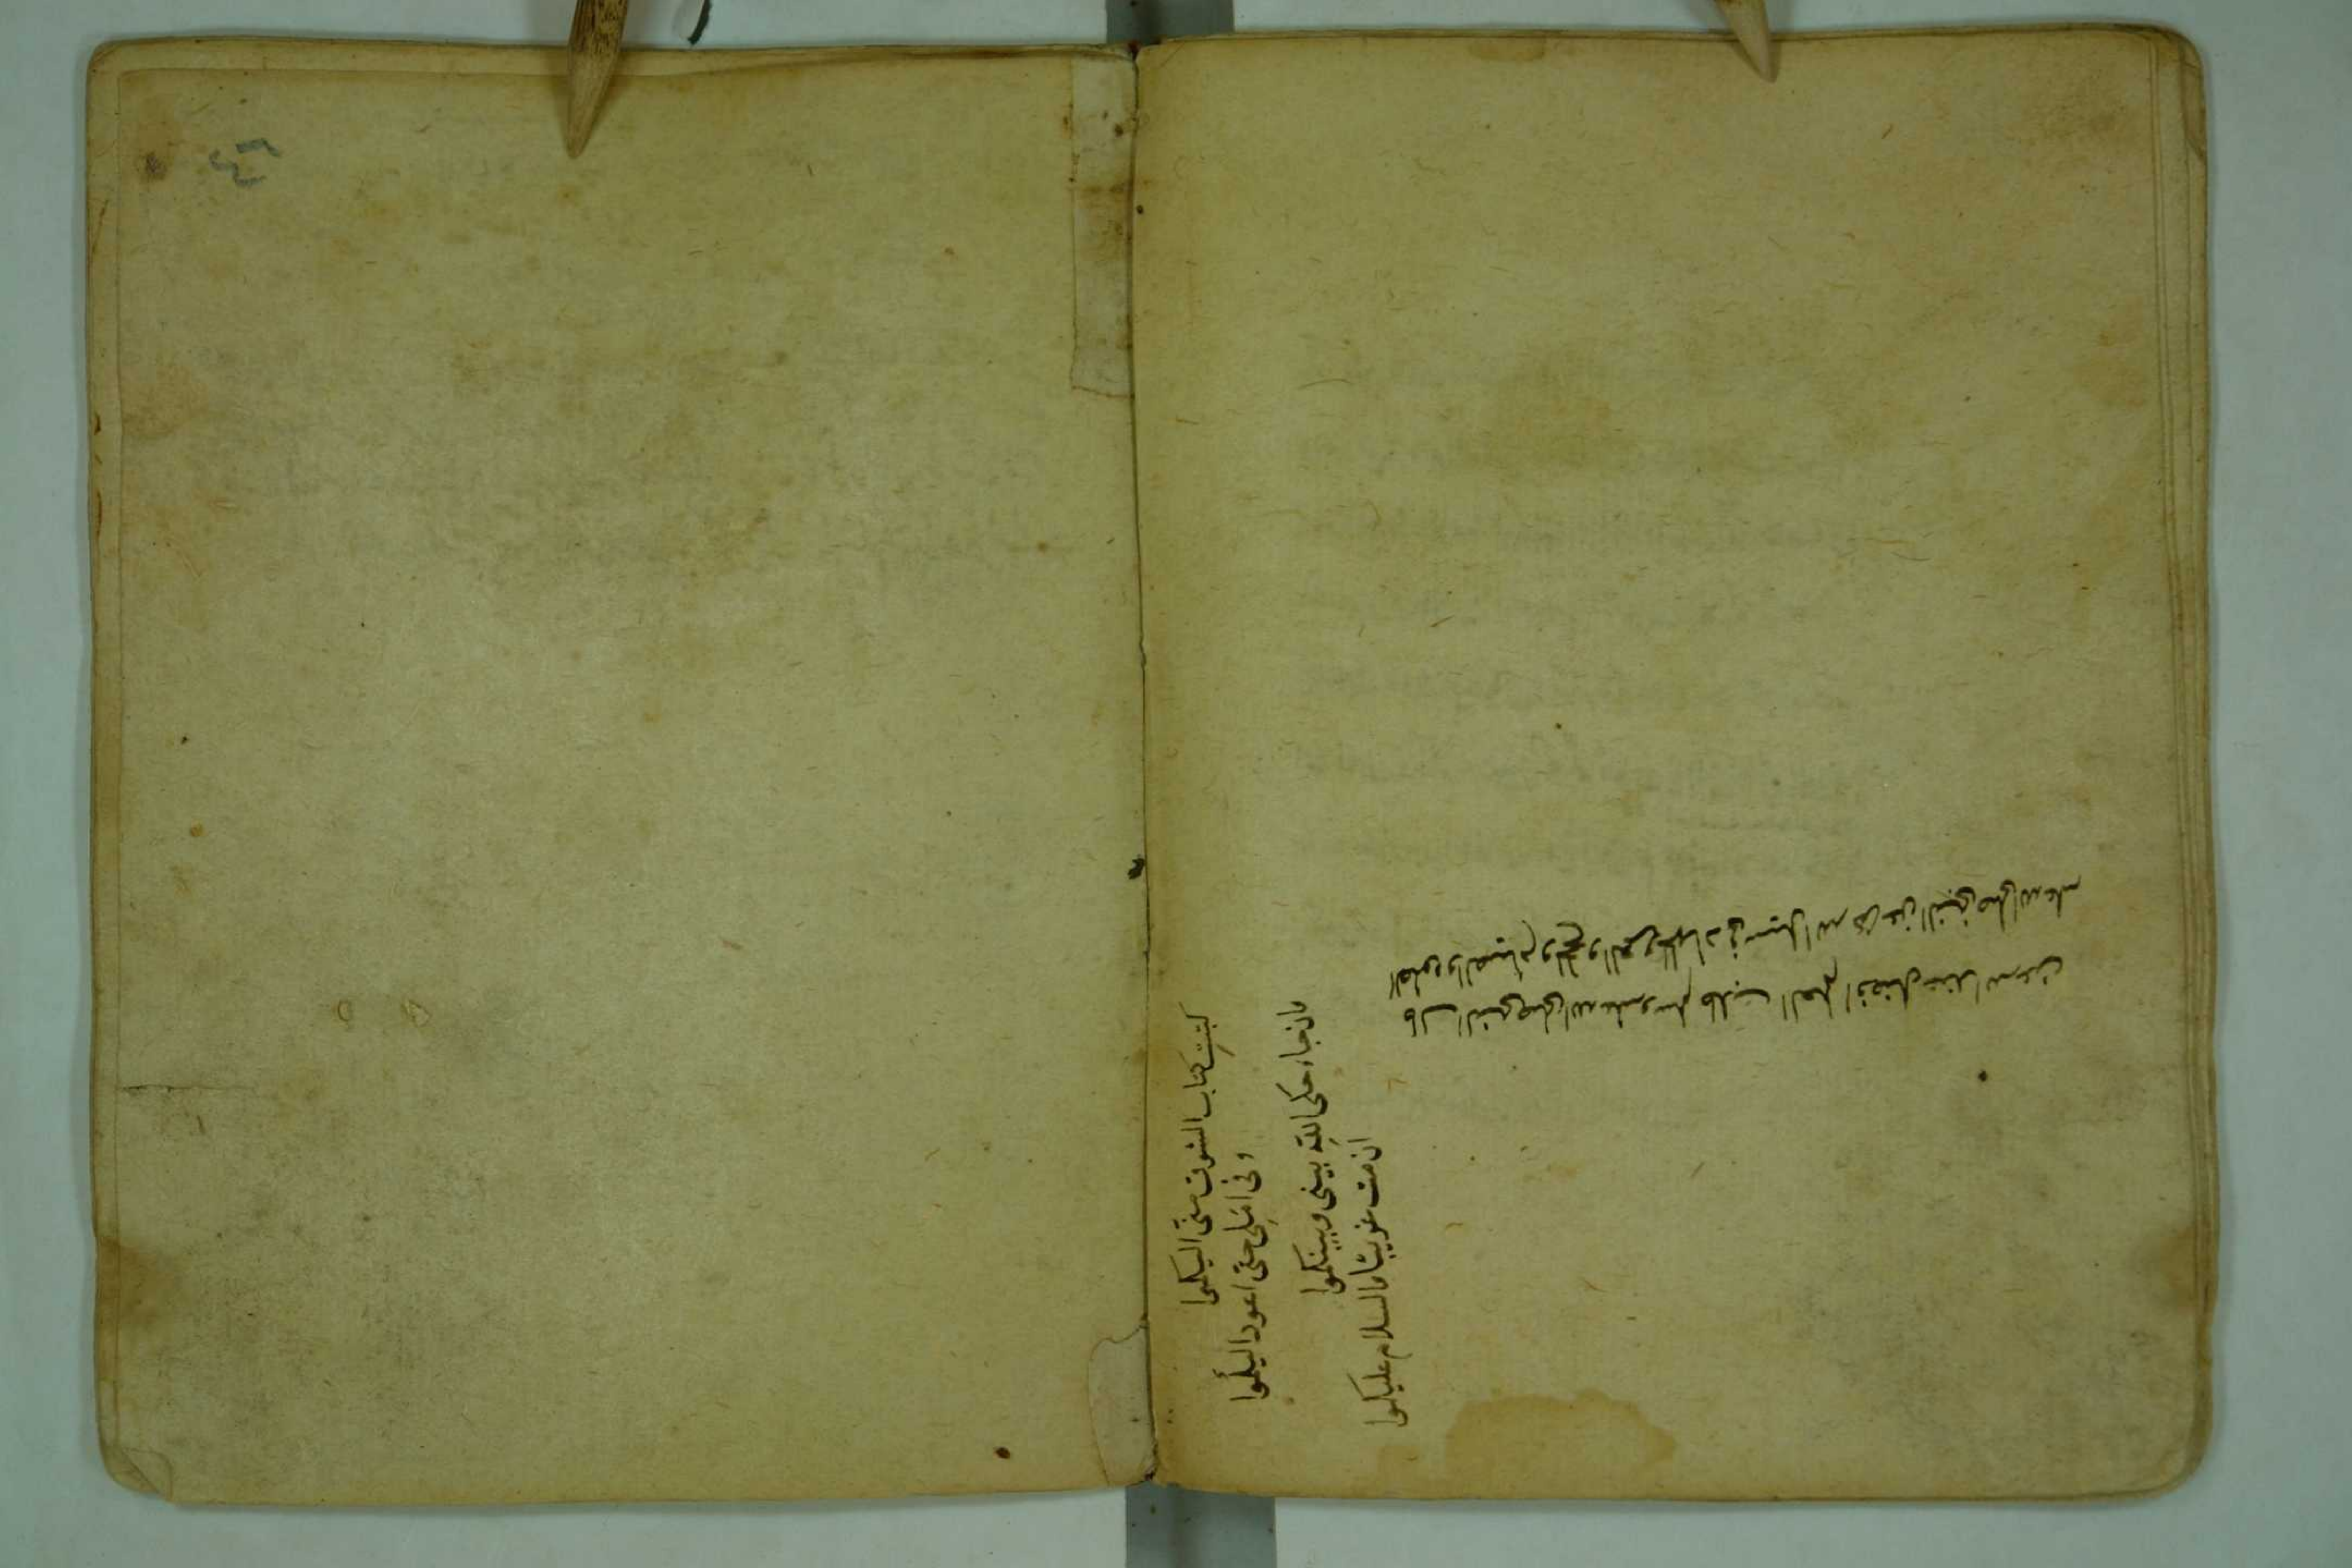 كتبت كتاب الشوق منى اليكموا
وفى املى حتى اعود اليكموا
فان جاء حكم الله بينى وبينكموا
ان مت غريبا فالسلام عليكموا
قال النبى صلى الله عليه وسلم طالب العلم افضل عند الله من
الصلوة والصيام والحج والجهاد فى سبيل الله عن النبى صلى الله عليه